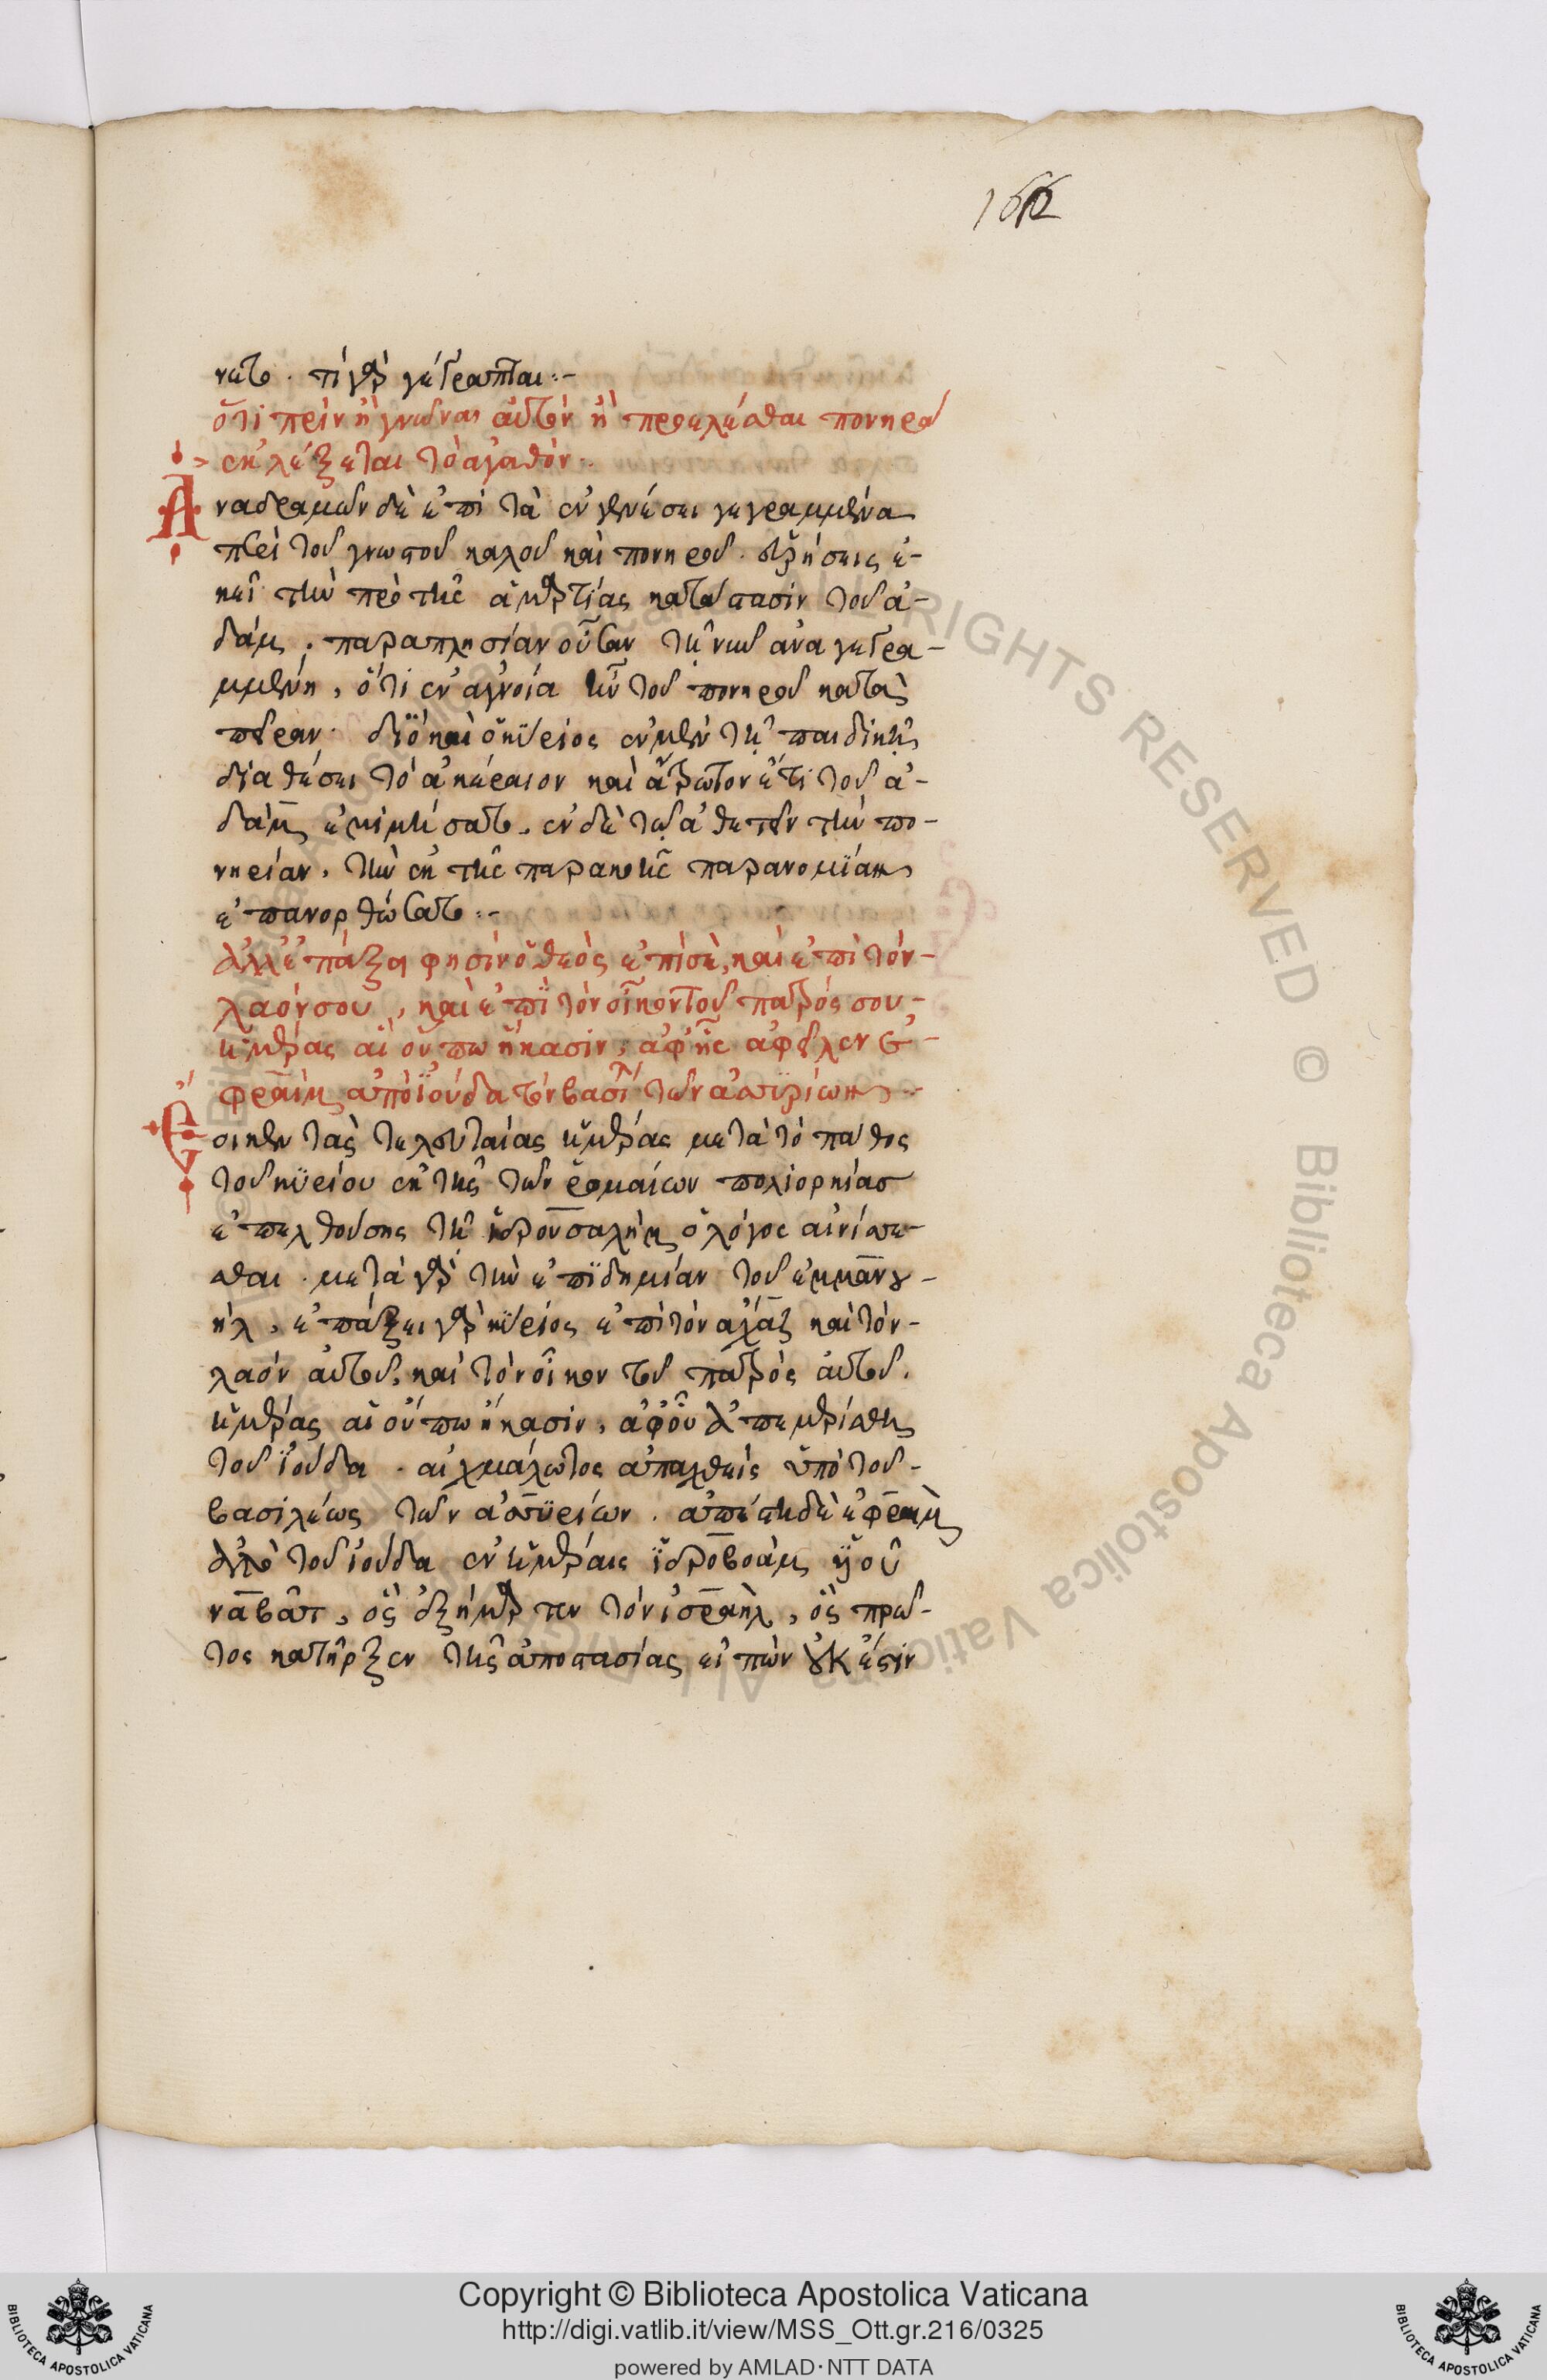 162
νετο. τί γὰρ γέγραπται:-
ὅτι πρὶν ἢ γνῶναι αὐτὸν ἢ προελέσθαι πονηρὰ
ἐκλέξεται τὸ ἀγαθόν.
Ἀναδραμὼν δὲ ἐπὶ τὰ ἐν γενέσει γεγραμμένα
περὶ τοῦ γνωστοῦ καλοῦ καὶ πονηροῦ. εὑρήσεις ἐ-
κεῖ τὴν πρὸ τῆς ἁμαρτίας κατάστασιν τοῦ ἀ-
δάμ. παραπλησίαν οὖσαν τῇ νῦν ἀναγεγρα-
μμένῃ, ὅτι ἐν ἀγνοία ἦν τοῦ πονηροῦ κατὰ
πεῖραν. διὸ καὶ ὁ κύριος ἐν μὲν τῇ παιδικῇ
διαθέσει τὸ ἀκέραιον καὶ ἄτρωτον ἔτι τοῦ ἀ-
δὰμ ἐμιμήσατο. ἐν δὲ τῷ ἀθετεῖν τὴν πο-
νηρίαν. τὴν ἐκ τῆς παρακοῆς παρανομίαν
ἐπανορθώσατο:-
ἀλλ' ἐπάξει φησὶν ὁ θεὸς ἐπὶ σὲ, καὶ ἐπὶ τὸν-
λαόν σου, καὶ ἐπὶ τὸν οἶκον τοῦ πατρός σου-
ἡμέρας αἳ οὔπω ἥκασιν, ἀφ' ἧς ἀφεῖλεν ἐ-
φραὶμ ἀπὸ ἰούδα τὸν βασιλ τῶν ἀσσυρίων:-
Ἔοικεν τὰς τελευταίας ἡμέρας μετὰ τὸ πάθος
τοῦ κυρίου ἐκ τῆς τῶν ῥωμαίων πολιορκίας
ἐπελθούσης τῇ ἱερουσαλὴμ ὁ λόγος αἰνίττε-
σθαι. μετὰ γὰρ τὴν ἐπιδημίαν τοῦ ἐμμανου-
ὴλ, ἐπάξει γὰρ κύριος ἐπὶ τὸν ἀχὰζ καὶ τὸν-
λαὸν αὐτοῦ, καὶ τὸν οἶκον τοῦ πατρὸς αὐτοῦ.
ἡμέρας αἳ οὔπω ἥκασιν, ἀφ' οὗ ἀπεμερίσθη
τοῦ ἰούδα. αἰχμάλωτος ἀπαχθεὶς ὑπὸ τοῦ-
βασιλέως τῶν ἀσσυρίων. ἀπέστη δὲ ἐφραὶμ
ἀπὸ τοῦ ἰούδα ἐν ἡμέραις ἱεροβοὰμ υἱοῦ
ναβὰτ, ὃς ἐξήμαρτεν τὸν ἰσραὴλ, ὃς πρῶ-
τος κατῆρξεν τῆς ἀποστασίας εἰπὼν οὐκ ἔστιν
Copyright © Biblioteca Apostolica Vaticana
http://digi.vatlib.it/view/MSS_Ott.gr.216/0325
powered by AMLAD·NTT DATA
BIBLIOTECA APOSTOLICA VATICANA
BIBLIOTECA APOSTOLICA VATICANA